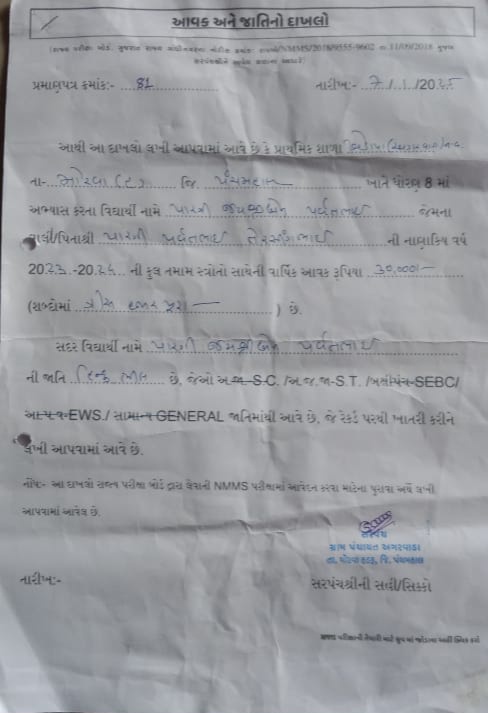 આવક અને જાતિનો દાખલો
(રાજ્ય પરીક્ષા બોર્ડ, ગુજરાત રાજ્ય ગાંધીનગરના ક્રમાંક: રાપબો/NMMS/2018/9555-9602 તા 11/09/2018 મુજબ
પ્રમાણપત્ર ક્રમાંક:- 81 તારીખ:- 7/1/2025
આથી આ દાખલો લખી આપવામાં આવે છે કે પ્રાથમિક શાળા
તા- મોરવા (હ) જિ. પંચમહાલ ખાતે ધોરણ 8 માં
અભ્યાસ કરતા વિદ્યાર્થી નામે પારગી જયશ્રીબેન પર્વતભાઇ જેમના
વાલી/પિતાશ્રી પારગી પર્વતભાઇ તેરસીંગભાઇ ની નાણાકિય વર્ષ
2023-2024 ની કુલ તમામ સ્ત્રોતો સાથેની વાર્ષિક આવક રૂપિયા 30,000/-
(શબ્દોમાં ત્રીસ હજાર પુરા ) છે.
સદર વિદ્યાર્થી નામે પારગી જયશ્રીબેન પર્વતભાઇ
ની જાતિ હિન્દુ ભીલ છે, જેઓ અ.જા-S.C. /અ.જ.જા-S.T. /બક્ષીપંચ-SEBC/
આ.પ.વ-EWS./ સામાન્ય-GENERAL જાતિમાંથી આવે છે. જે રેકર્ડ પરથી ખાતરી કરીને
લખી આપવામાં આવે છે.
નોંધ:- આ દાખલો રાજ્ય પરીક્ષા બોર્ડ દ્વારા લેવાની NMMS પરીક્ષામાં આવેદન કરવા માટેના પુરાવા અર્થે લખી
આપવામાં આવેલ છે.
સરપંચ
ગ્રામ પંચાયત અગરવાડા
તા. મોરવા(હડફ), જિ. પંચમહાલ
તારીખ:- સરપંચશ્રીની સહી/સિક્કો